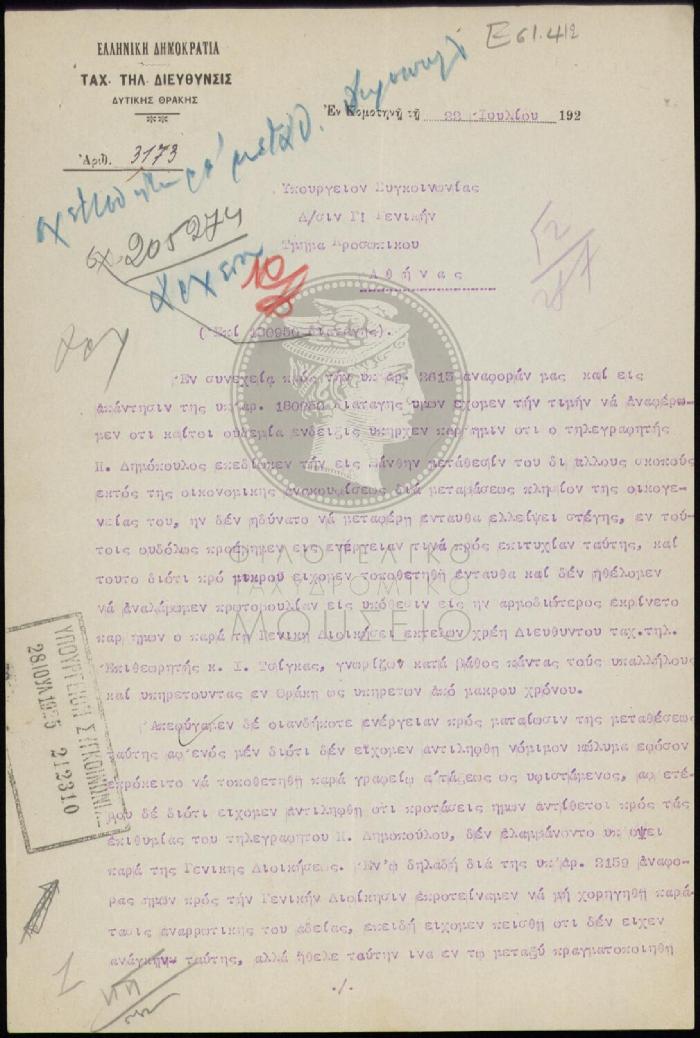 Ε 61.4/2
ΕΛΛΗΝΙΚΗ ΔΗΜΟΚΡΑΤΙΑ
ΤΑΧ. ΤΗΛ. ΔΙΕΥΘΥΝΣΙΣ
ΔΥΤΙΚΗΣ ΘΡΑΚΗΣ
Ἐν Κομοτηνῇ τῇ 22 Ἰουλίου 192
Ἀριθ. 3173
Υπουργειον Συγκοινωνίας
Δ/σιν Γ! Γενικήν
205274
Τμημα Προσωπικου
Ἀθήνας
(Ἐπί 180950 διαταγης).
Ἐν συνεχεία πρός τήν υπ'αρ. 2615 αναφοράν μας καί εις
απάντησιν της υπ'αρ. 180950 διαταγης υμων εχομεν τήν τιμήν νά αναφέρω-
μεν οτι καίτοι ουδεμία ενδειξις υπηρχεν παρ'ημιν οτι ο τηλεγραφητής
Π. Δημόπουλος επεδίωκεν τήν εις Ξάνθην μετάθεσίν του δι'άλλους σκοπούς
εκτός της οικονομικης ανακουφίσεως διά μεταβάσεως πλησίον της οικογε-
νείας του, ην δέν ηδύνατο νά μεταφέρη ενταυθα ελλείψει στέγης, εν τού-
τοις ουδόλως προέβημεν εις ενέργειαν τινά πρός επιτυχίαν ταύτης, καί
τουτο διότι πρό μικρου ειχομεν τοποθετηθη ενταυθα καί δέν ηθέλομεν
νά αναλάβωμεν πρωτοβουλίαν εις υπόθεσιν εις ην αρμοδιώτερος εκρίνετο
παρ'ημων ο παρά τη Γενικη Διοικήσει εκτελων χρέη Διευθυντου ταχ.τηλ.
Ἐπιθεωρητής κ. Ι. Τσίγκας, γνωρίζων κατά βάθος πάντας τούς υπαλλήλους
καί υπηρετουντας εν Θράκη ως υπηρετων από μακρου χρόνου.
Ἀπεφύγαμεν δέ οιανδήποτε ενέργειαν πρός ματαίωσιν της μεταθέσεως
ταύτης αφ'ενός μέν διότι δέν ειχομεν αντιληφθη νόμιμον κώλυμα εφόσον
επρόκειτο νά τοποθετηθη παρά γραφείω α'τάξεως ως υφιστάμενος, αφ'ετέ-
ρου δέ διότι ειχομεν αντιληφθη οτι προτάσεις ημων αντίθετοι πρός τάς
επιθυμίας του τηλεγραφητου Π. Δημοπούλου, δέν ελαμβάνοντο υπ'όψει
παρά της Γενικης Διοικήσεως. Ἐν'ω δηλαδή διά της υπ'αρ. 2159 αναφο-
ρας ημων πρός τήν Γενικήν Διοίκησιν επροτείναμεν νά μή χορηγηθη παρά-
τασις αναρρωτικης του αδείας, επειδή ειχομεν πεισθη οτι δέν ειχεν
ανάγκην ταύτης, αλλά ήθελε ταύτην ινα εν τω μεταξύ πραγματοποιηθη
./.
ΥΠΟΥΡΓΕΙΟΝ ΣΥΓΚΟΙΝΩΝΙΑΣ
28 ΙΟΥΛ 1925 212310
ΦΙΛΟΤΕΛΙΚΟ
ΤΑΧΥΔΡΟΜΙΚΟ
ΜΟΥΣΕΙΟ